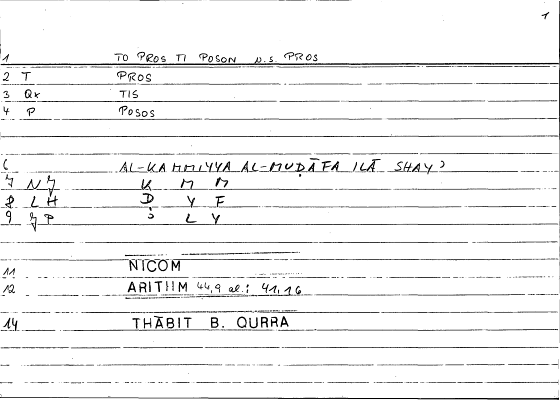 1
1 TO PROS TI POSON N.S. PROS
2 T PROS
3 Qx TIS
4 P POSOS
6 AL-KAMMIYYA AL-MUḌĀFA ILĀ SHAYʾ
7 K M M
8 LH Ḍ Y F
9 L Y
11 NICOM
12 ARITHM 44,9 al.; 41,16
14 THĀBIT B. QURRA